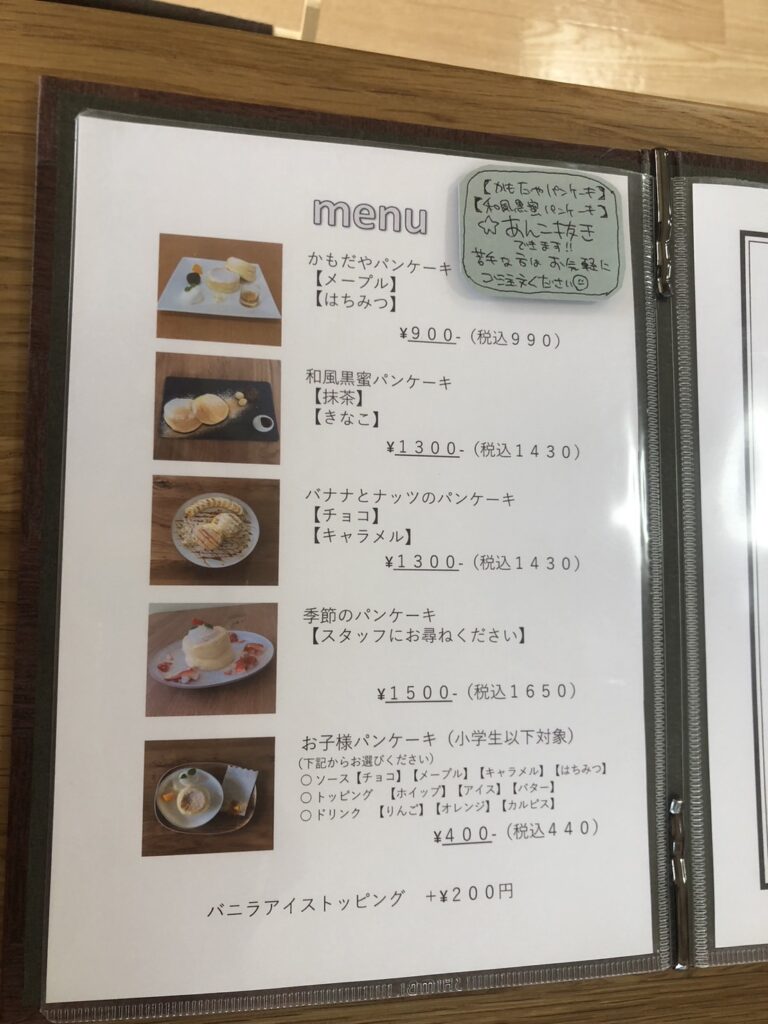 menu
【かもだやパンケーキ】
【和風黒蜜パンケーキ】
☆あんこ抜き
できます!!
苦手な方はお気軽に
ご注文ください☺
かもだやパンケーキ
【メープル】
【はちみつ】
¥９００-（税込９９０）
和風黒蜜パンケーキ
【抹茶】
【きなこ】
¥１３００-（税込１４３０）
バナナとナッツのパンケーキ
【チョコ】
【キャラメル】
¥１３００-（税込１４３０）
季節のパンケーキ
【スタッフにお尋ねください】
¥１５００-（税込１６５０）
お子様パンケーキ（小学生以下対象）
（下記からお選びください）
〇ソース【チョコ】【メープル】【キャラメル】【はちみつ】
〇トッピング　【ホイップ】【アイス】【バター】
〇ドリンク　【りんご】【オレンジ】【カルピス】
¥４００-（税込４４０）
バニラアイストッピング　＋¥２００円